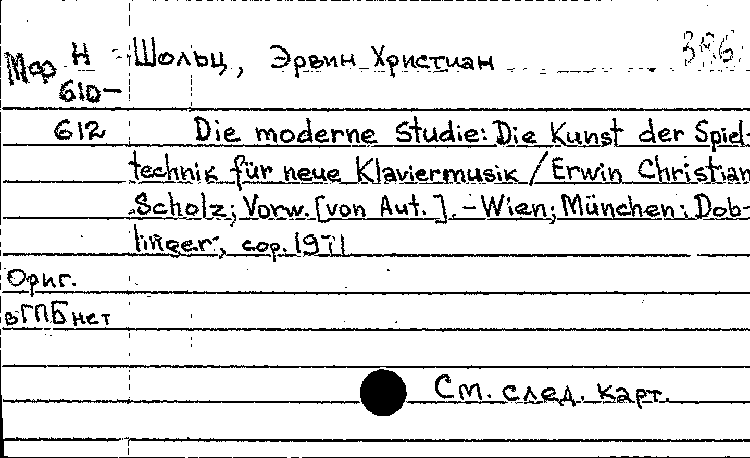 Мф Н Шольц, Эрвин Христиан
610-
612 Die moderne Studie: Die Kunst der Spiel-
technik für neue Klaviermusik / Erwin Christian
Scholz; Vorw. [von Aut.]. - Wien; München: Dob-
linger, cop. 1971
Ориг.
в ГПБ нет
См. след. карт.